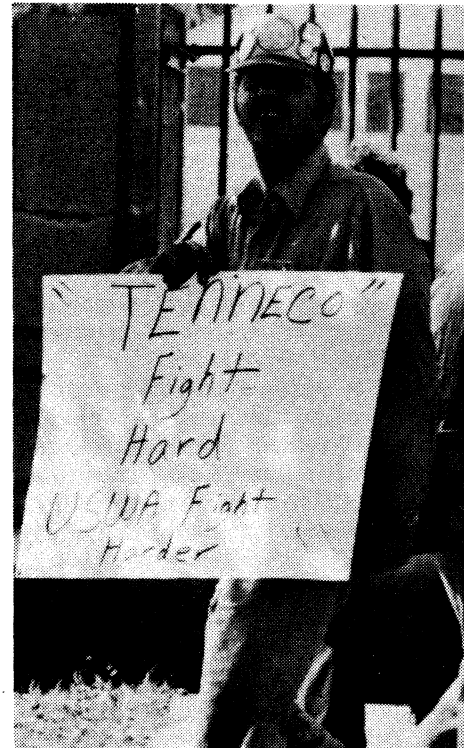 "TENNECO"
Fight
Hard
USWA Fight
Harder